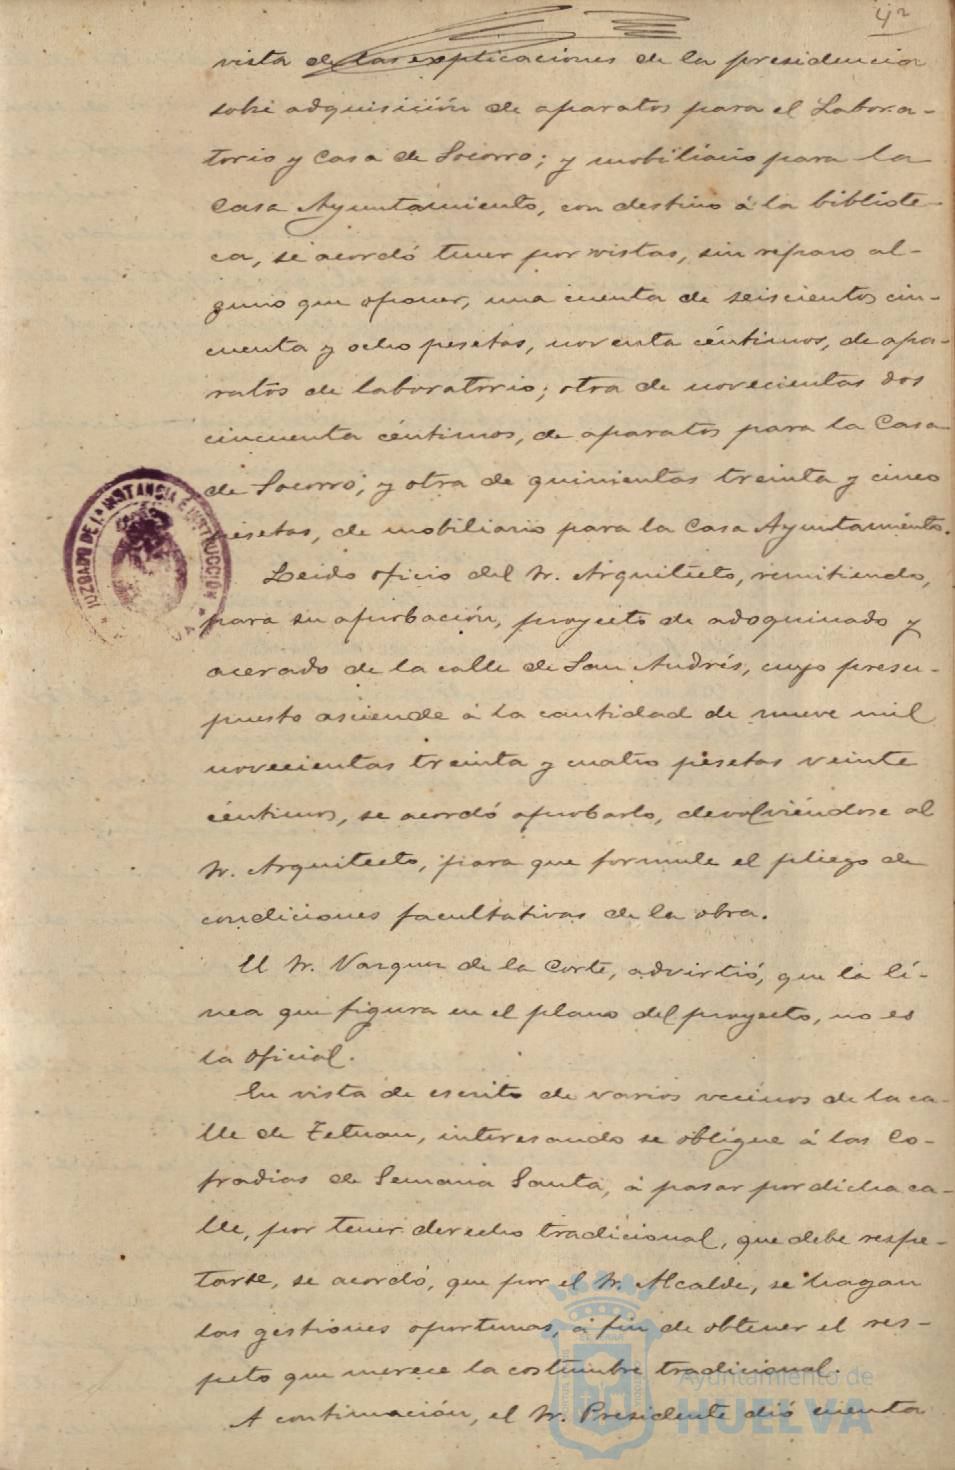 42
vista de las explicaciones de la presidencia
sobre adquisición de aparatos para el Labora-
torio y Casa de Socorro; y mobiliario para la
Casa Ayuntamiento, con destino á la bibliote-
ca, se acordó tener por vistas, sin reparo al-
guno que oponer, una cuenta de seiscientos cin-
cuenta y ocho pesetas, noventa céntimos, de apa-
ratos de laboratorio; otra de novecientas dos
cincuenta céntimos, de aparatos para la Casa
de Socorro; y otra de quinientas treinta y cinco
pesetas, de mobiliario para la Casa Ayuntamiento.
Leido oficio del Sr. Arquitecto, remitiendo,
para su aprobación, proyecto de adoquinado y
acerado de la calle de San Andrés, cuyo presu-
puesto asciende á la cantidad de nueve mil
novecientas treinta y cuatro pesetas veinte
céntimos, se acordó aprobarlo, devolviéndose al
Sr. Arquitecto, para que formule el pliego de
condiciones facultativas de la obra.
El Sr. Vazquez de la Corte, advirtió, que la lí-
nea que figura en el plano del proyecto, no es
la oficial.
En vista de escrito de varios vecinos de la ca-
lle de Tetuan, interesando se obligue á las Co-
fradias de Semana Santa, á pasar por dicha ca-
lle, por tener derecho tradicional, que debe respe-
tarse, se acordó, que por el Sr. Alcalde, se hagan
las gestiones oportunas, á fin de obtener el res-
peto que merece la costumbre tradicional.
A continuación, el Sr. Presidente dió cuenta
JUZGADO DE 1ª INSTANCIA E INSTRUCCIÓN
Ayuntamiento de
HUELVA